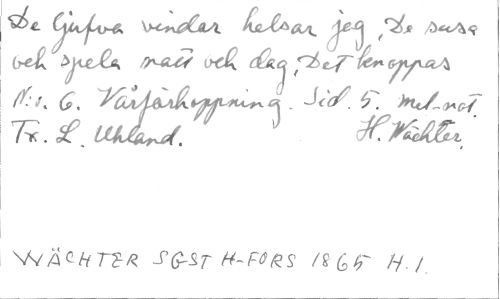 De ljufva vindar helsar jeg, De susa
och spela natt och dag, Det knoppas
N:o. 6. Vårförhoppning. Sid. 5. mel-not.
Tx. L. Uhland. H. Wächter.
WÄCHTER SGST H-FORS 1865 H.1.